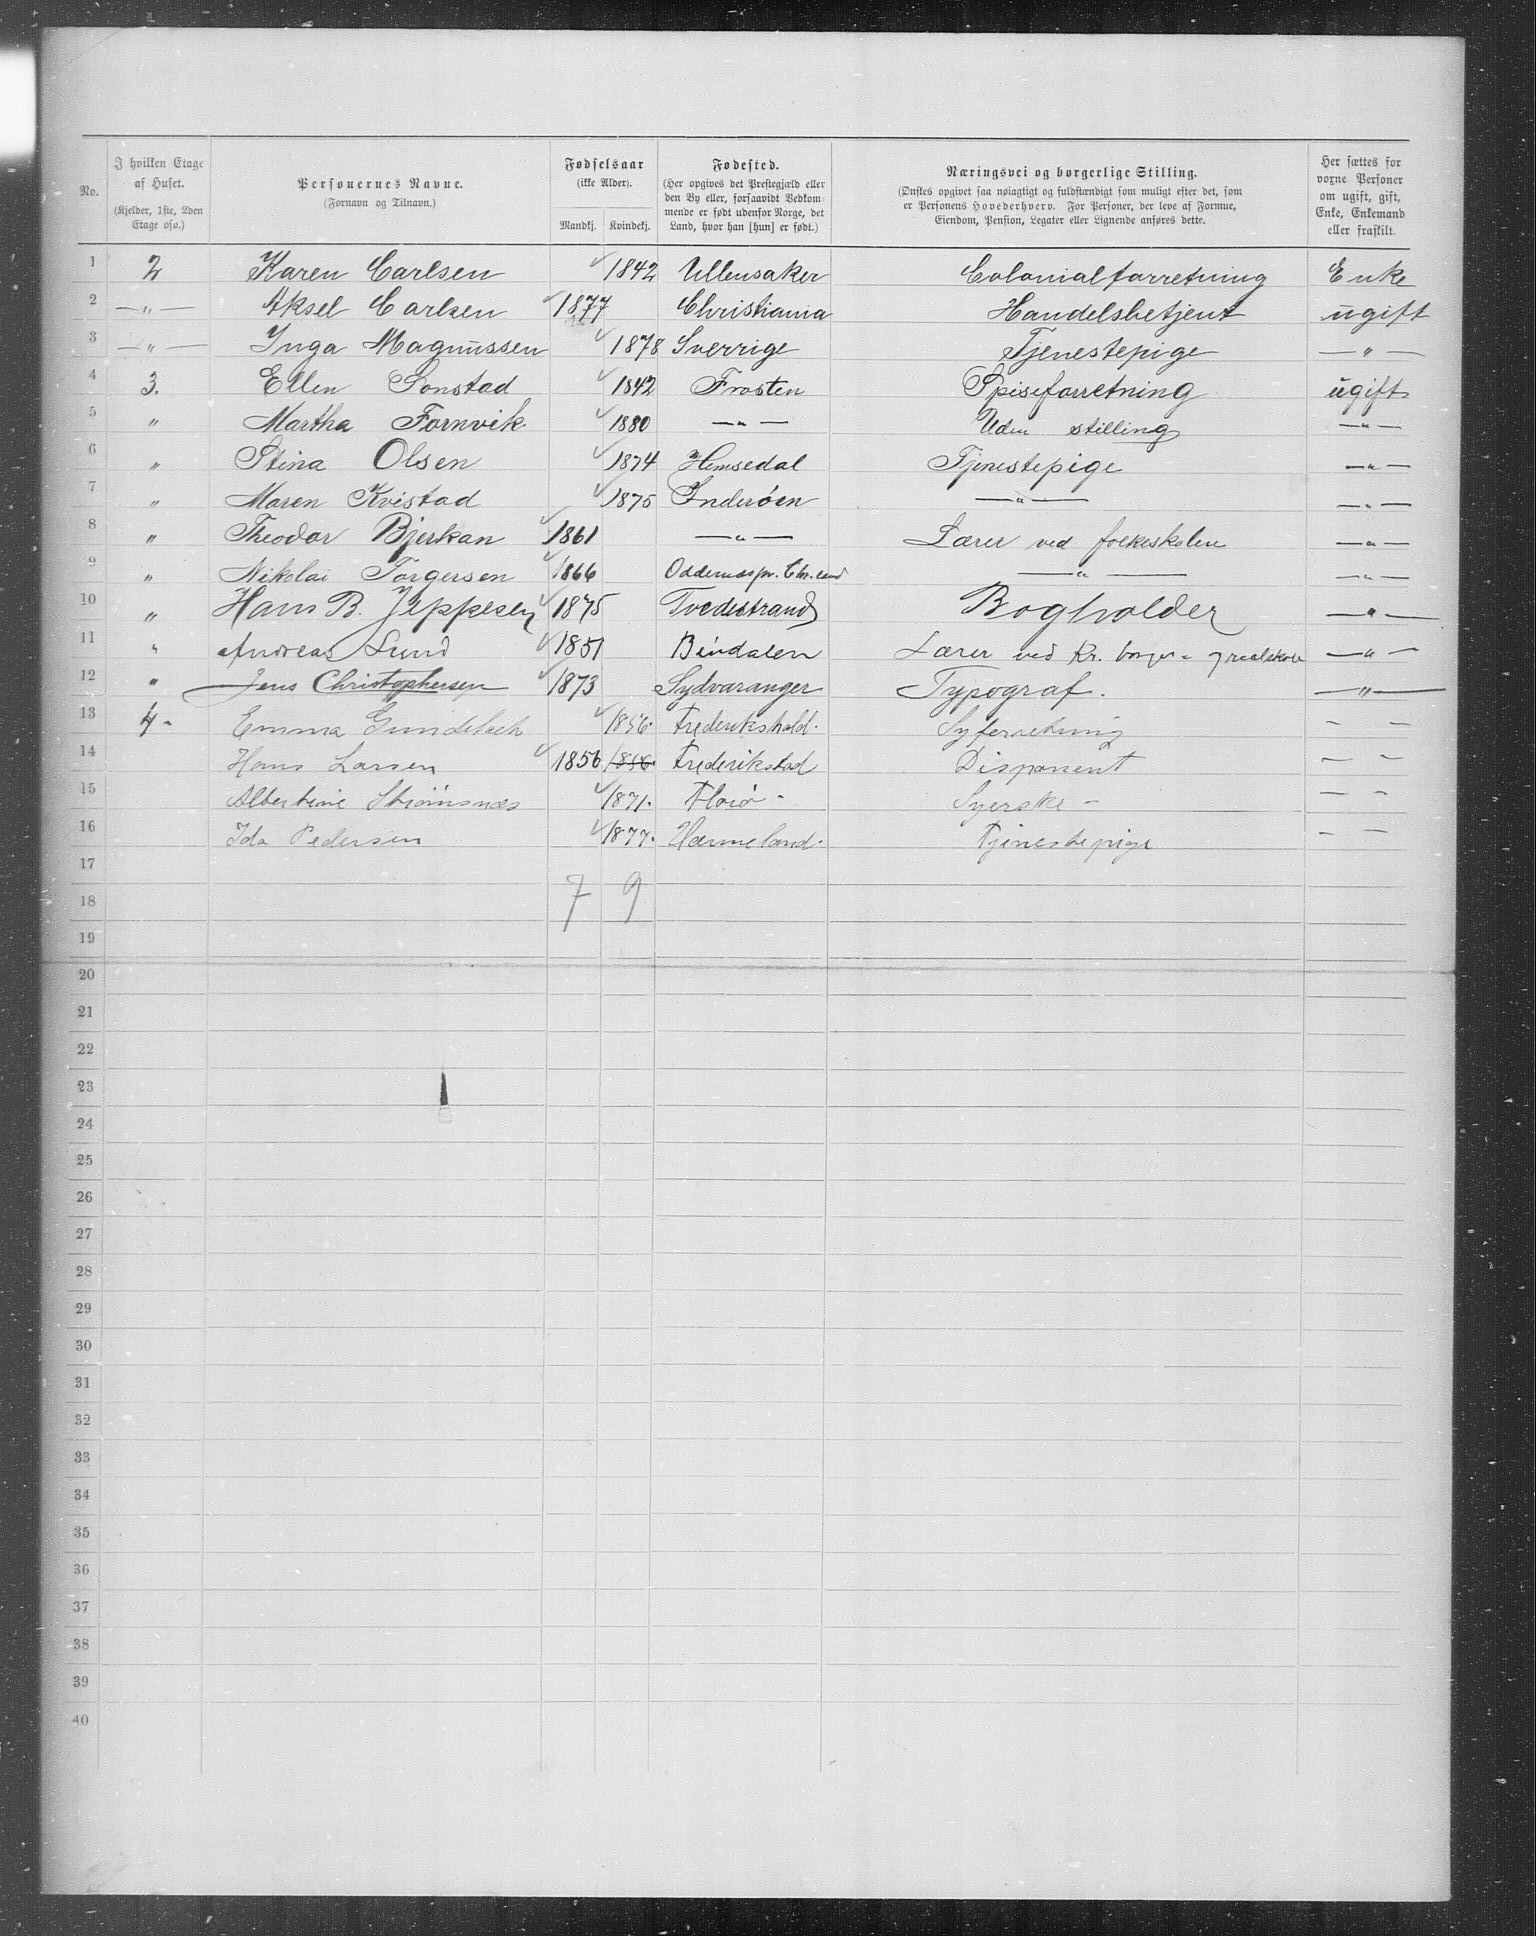 No. | I hvilken Etage af Huset. (Kjelder, 1ste, 2den Etage osv.) | Personernes Navne. (Fornavn og Tilnavn.) | Fødselsaar (ikke Alder). Mandkj. Kvindekj. | Fødested. (Her opgives det Prestegjæld eller den By eller, forsaavidt Bedkommende er født udenfor Norge, det Land, hvor han [hun] er født.) | Næringsvei og borgerlige Stilling. (Ønskes opgivet saa nøiagtigt og fuldstændigt som muligt efter det, som er Personens Hovederhverv. For Personer, der leve af Formue, Eiendom, Pension, Legater eller Lignende anføres dette. | Her sættes for vorne Personer om ugift, gift, Enke, Enkemand eller fraskilt.
1 2 Karen Carlsen 1842 Ullensaker Colonialforretning Enke
2 —"— Aksel Carlsen 1877 Christiania Handelsbetjent ugift
3 —"— Inga Magnussen 1878 Sverrige Tjenestepige —"—
4 3. Ellen Sonstad 1842 Frosten Spiseforretning ugift
5 " Martha Fornvik 1880 —"— Uden stilling —"—
6 " Stina Olsen 1874 Hemsedal Tjenestepige —"—
7 " Maren Kvistad 1875 Inderøen —"— —"—
8 " Theodor Bjerkan 1861 —"— Lærer ved folkeskolen —"—
9 " Nikolai Torgersen 1866 Oddernæs pr. Chr.sand —"— —"—
10 " Hans B. Jeppesen 1875 Tvedestrand Bogholder —"—
11 " Andreas Lund 1851 Bindalen Lærer ved Kr. borger- realskole —"—
12 " Jens Christophersen 1873 Sydvaranger Typograf. —"—
13 4- Emma Gundelach 1856. Frederikshald. Syforretning — —
14 Hans Larsen 1856 1856. Frederikstad Disponent — —
15 Albertine Strømsnæs 1871. Florø - Syerske - — —
16 Ida Pedersen 1877. Værmeland. Tjenestepige — —
17
18 7 9
19
20
21
22
23
24
25
26
27
28
29
30
31
32
33
34
35
36
37
38
39
40